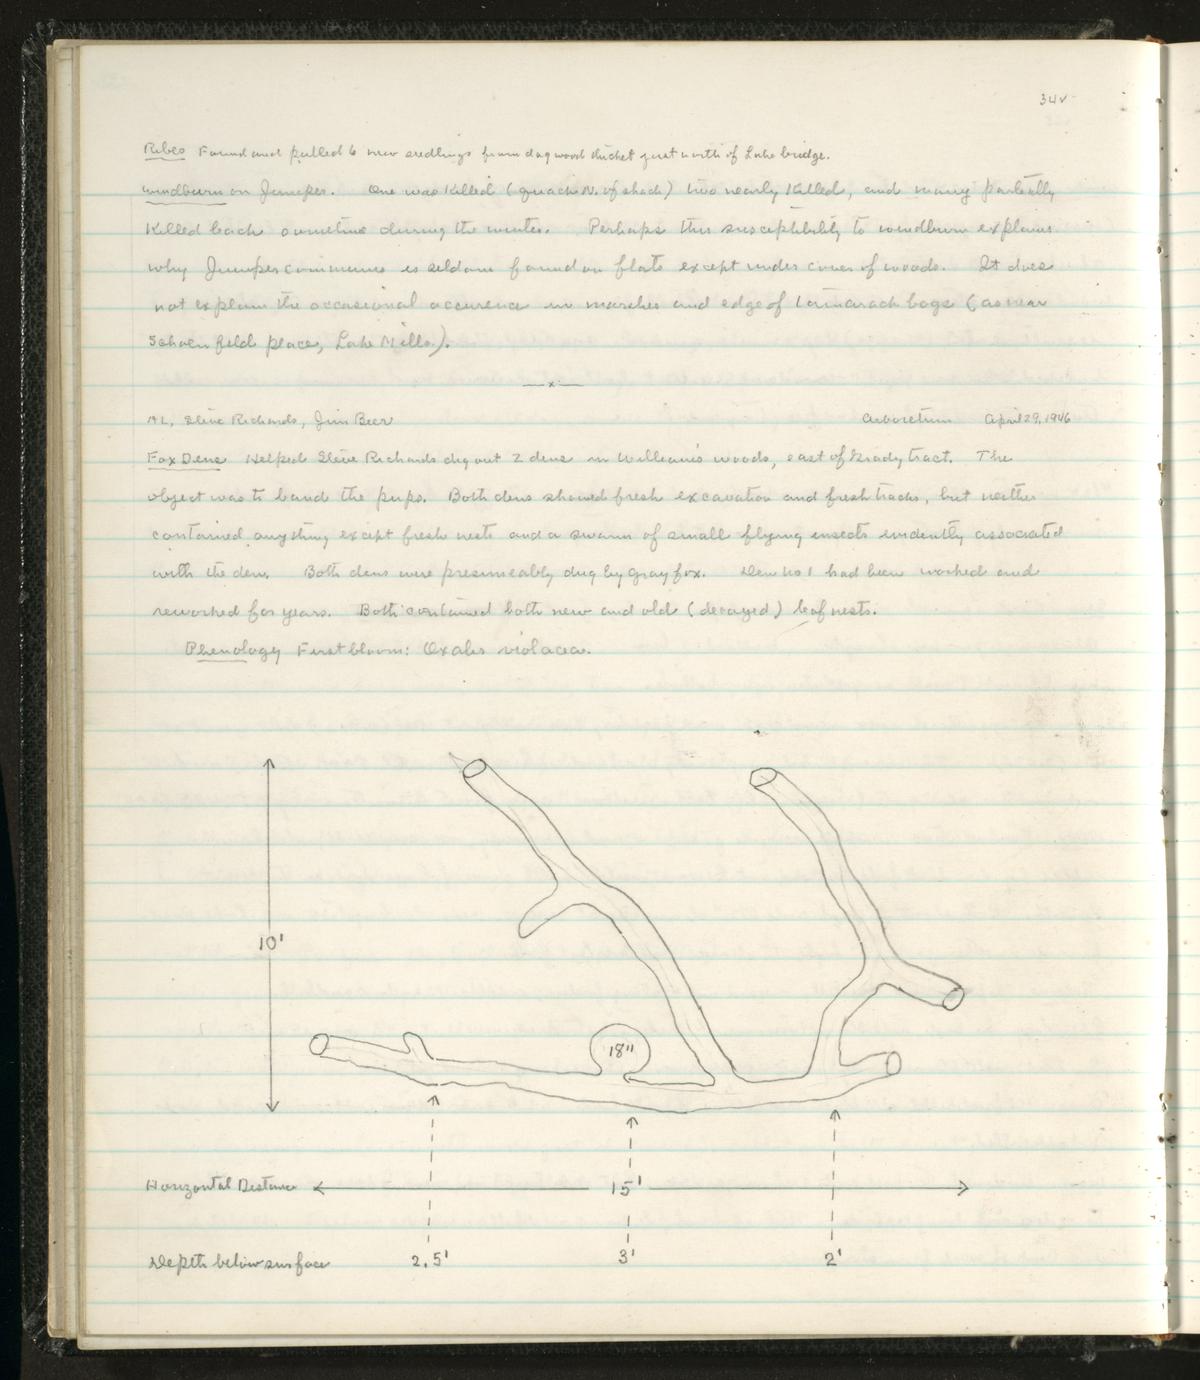 34v
Ribes Found and pulled 6 new seedlings from dogwood thicket just north of Lake bridge.
Windburn on Juniper. One was killed (quack N. of shack) two nearly killed, and many partially
killed back sometime during the winter. Perhaps this susceptibility to windburn explains
why Juniper communis is seldom found on flats except under cover of woods. It does
not explain the occasional occurence in marshes and edge of tamarack bogs (as near
Schoenfeld place, Lake Mills).
—x—
AL, Steve Richards, Jim Beer Arboretum April 29, 1946
Fox Dens Helped Steve Richards dig out 2 dens in William's woods, east of Grady tract. The
object was to band the pups. Both dens showed fresh excavation and fresh tracks, but neither
contained anything except fresh nests and a swarm of small flying insects evidently associated
with the den. Both dens were presumeably dug by gray fox. Den no 1 had been worked and
reworked for years. Both contained both new and old (decayed) leaf nests.
Phenology First bloom: Oxalis violacea.
10'
18"
Horizontal Distance 15'
Depth below surface 2.5' 3' 2'